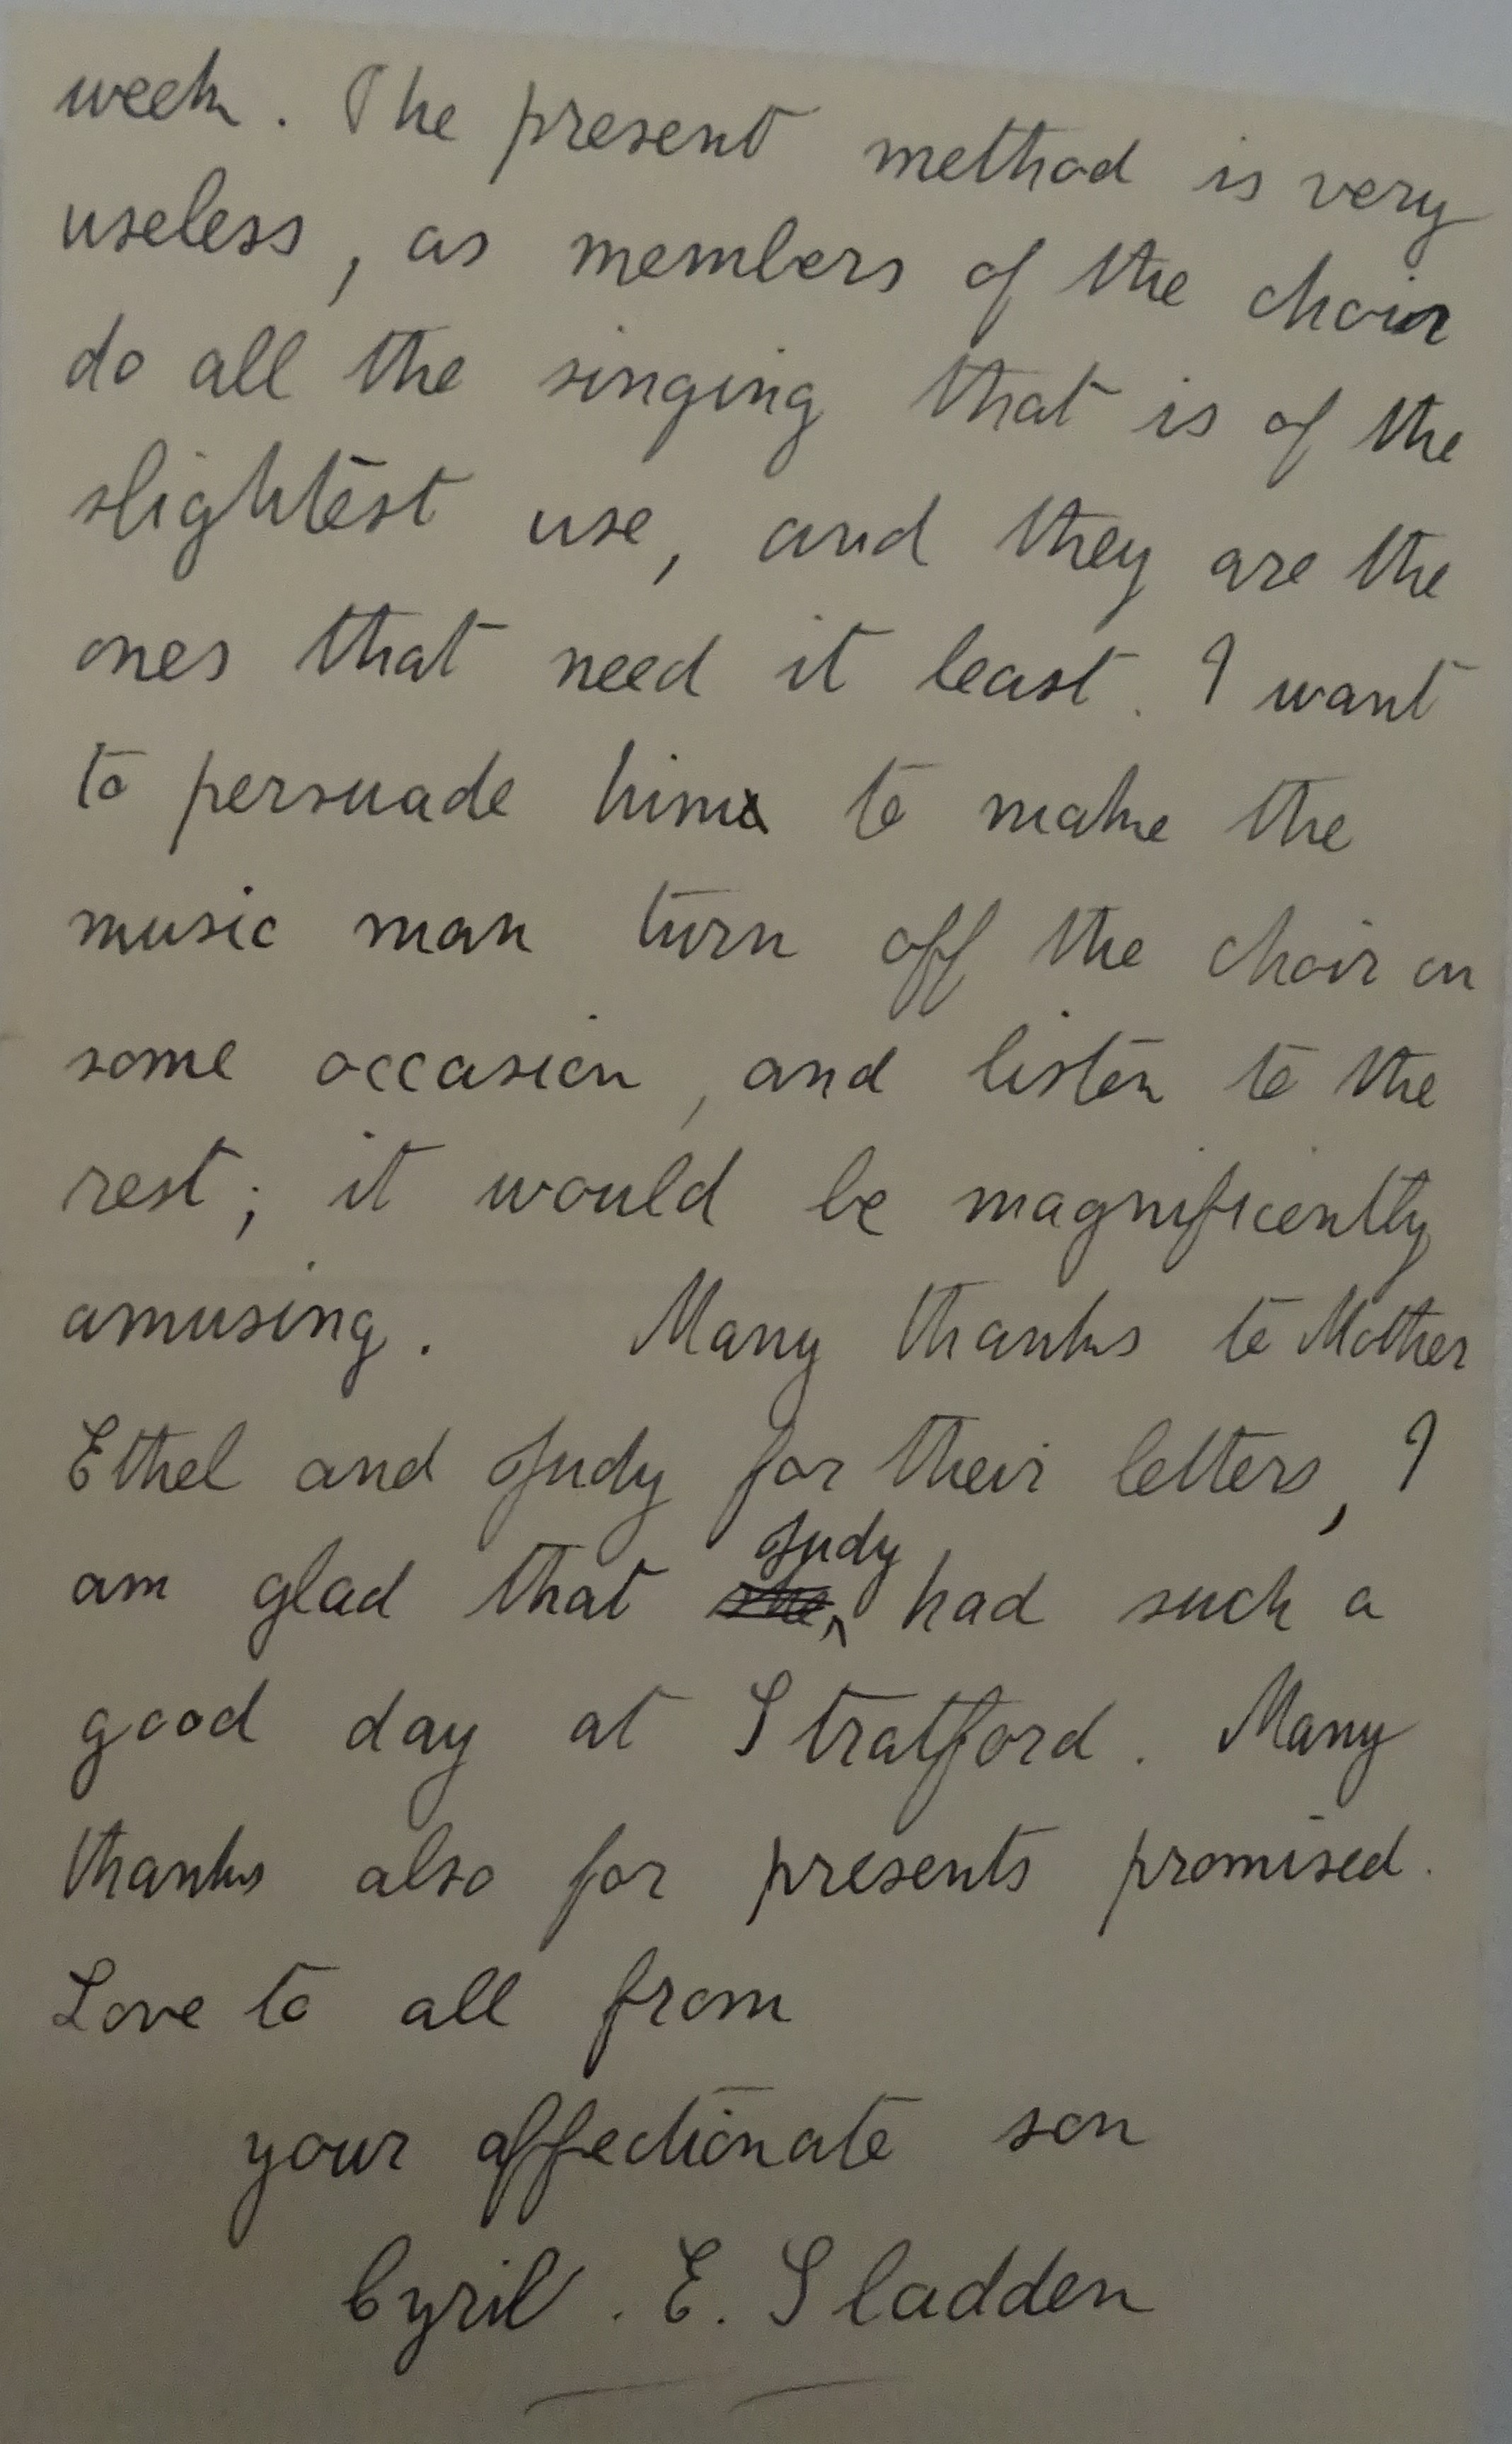 week. The present method is very
useless, as members of the choir
do all the singing that is of the
slightest use, and they are the
ones that need it least. I want
to persuade him to make the
music man turn off the choir on
some occasion, and listen to the
rest; it would be magnificently
amusing. Many thanks to Mother
Ethel and Judy for their letters, I
am glad that she Judy had such a
good day at Stratford. Many
thanks also for presents promised.
Love to all from
your affectionate son
Cyril. E. Sladden